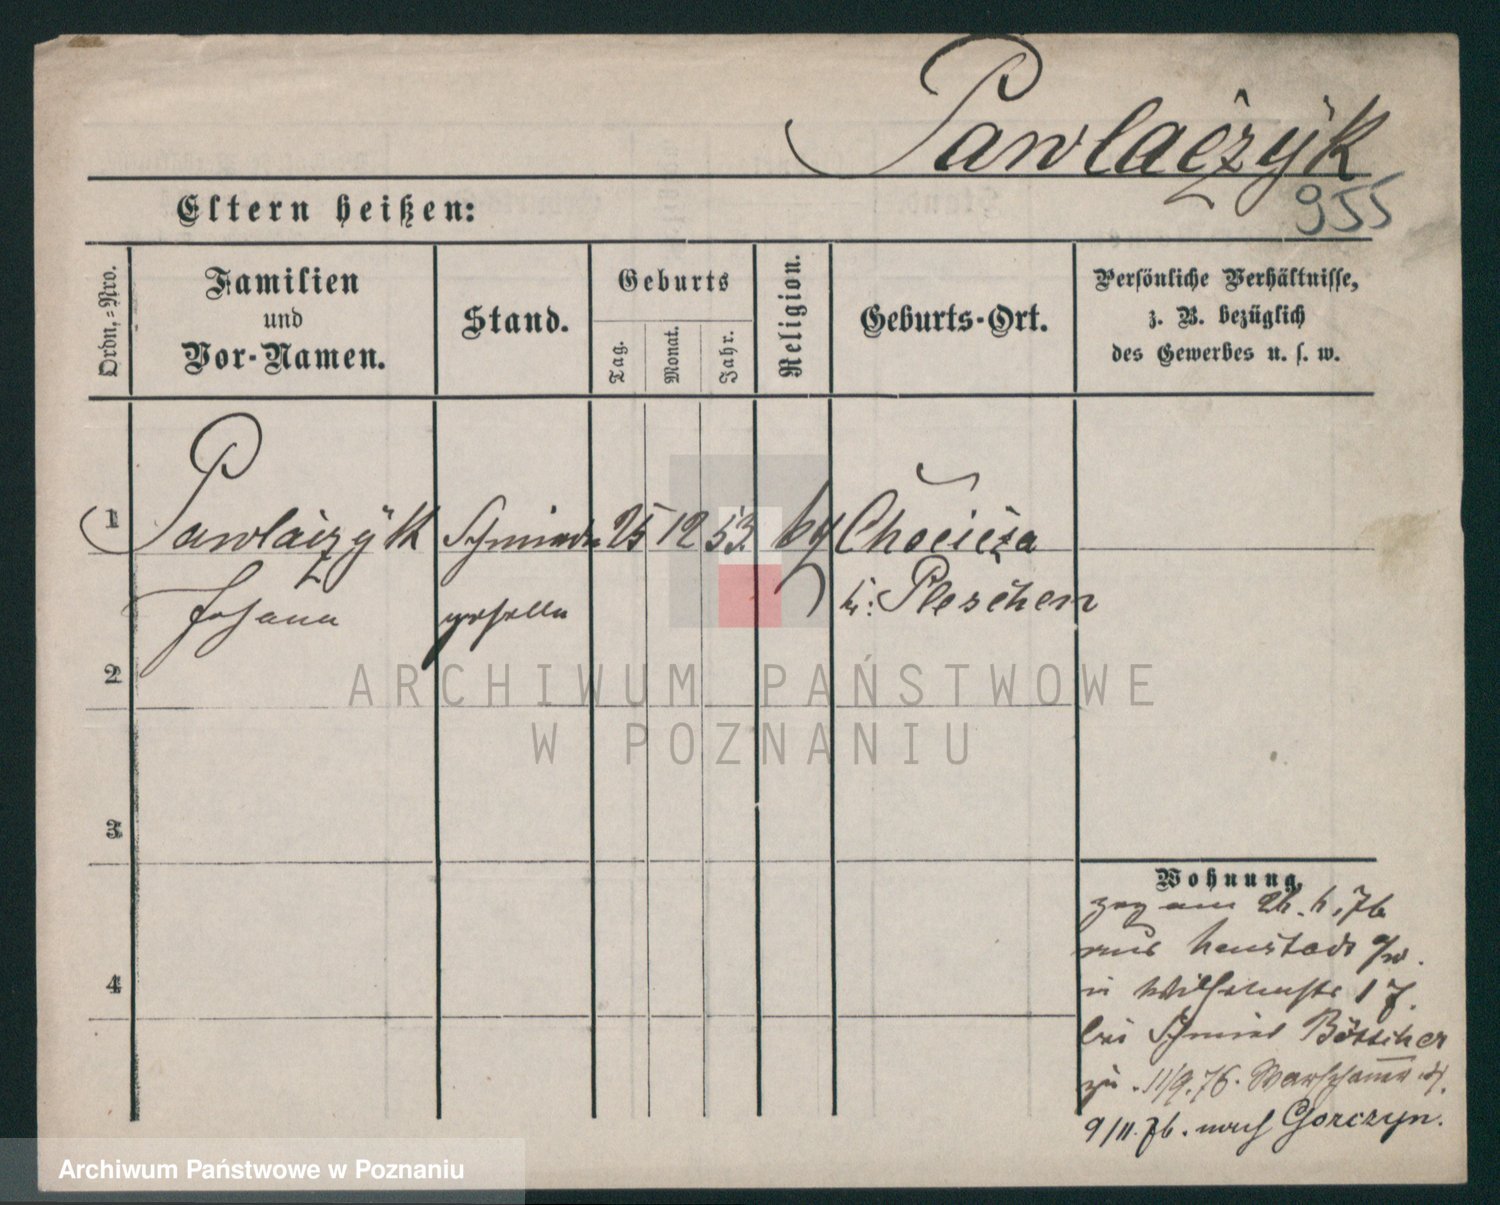 Pawlaczyk
955
Eltern heißen:
Ordn.-Nro.
Familien
und
Vor-Namen.
Stand.
Geburts
Tag.
Monat.
Jahr.
Religion.
Geburts-Ort.
Persönliche Verhältnisse,
z. B. bezüglich
des Gewerbes u. s. w.
1 Pawlaczyk Schmiede 25 12 53. Chocicza
Johann geselle Pleschen
2
3
4
ARCHIWUM PAŃSTWOWE
W POZNANIU
Wohnung.
zog am 76
aus Neustadt a/W.
in Wilhelmstr 17.
bei Schmied Böttcher
zu 11/9.76.
9/11.76. nach Gorczyn.
Archiwum Państwowe w Poznaniu